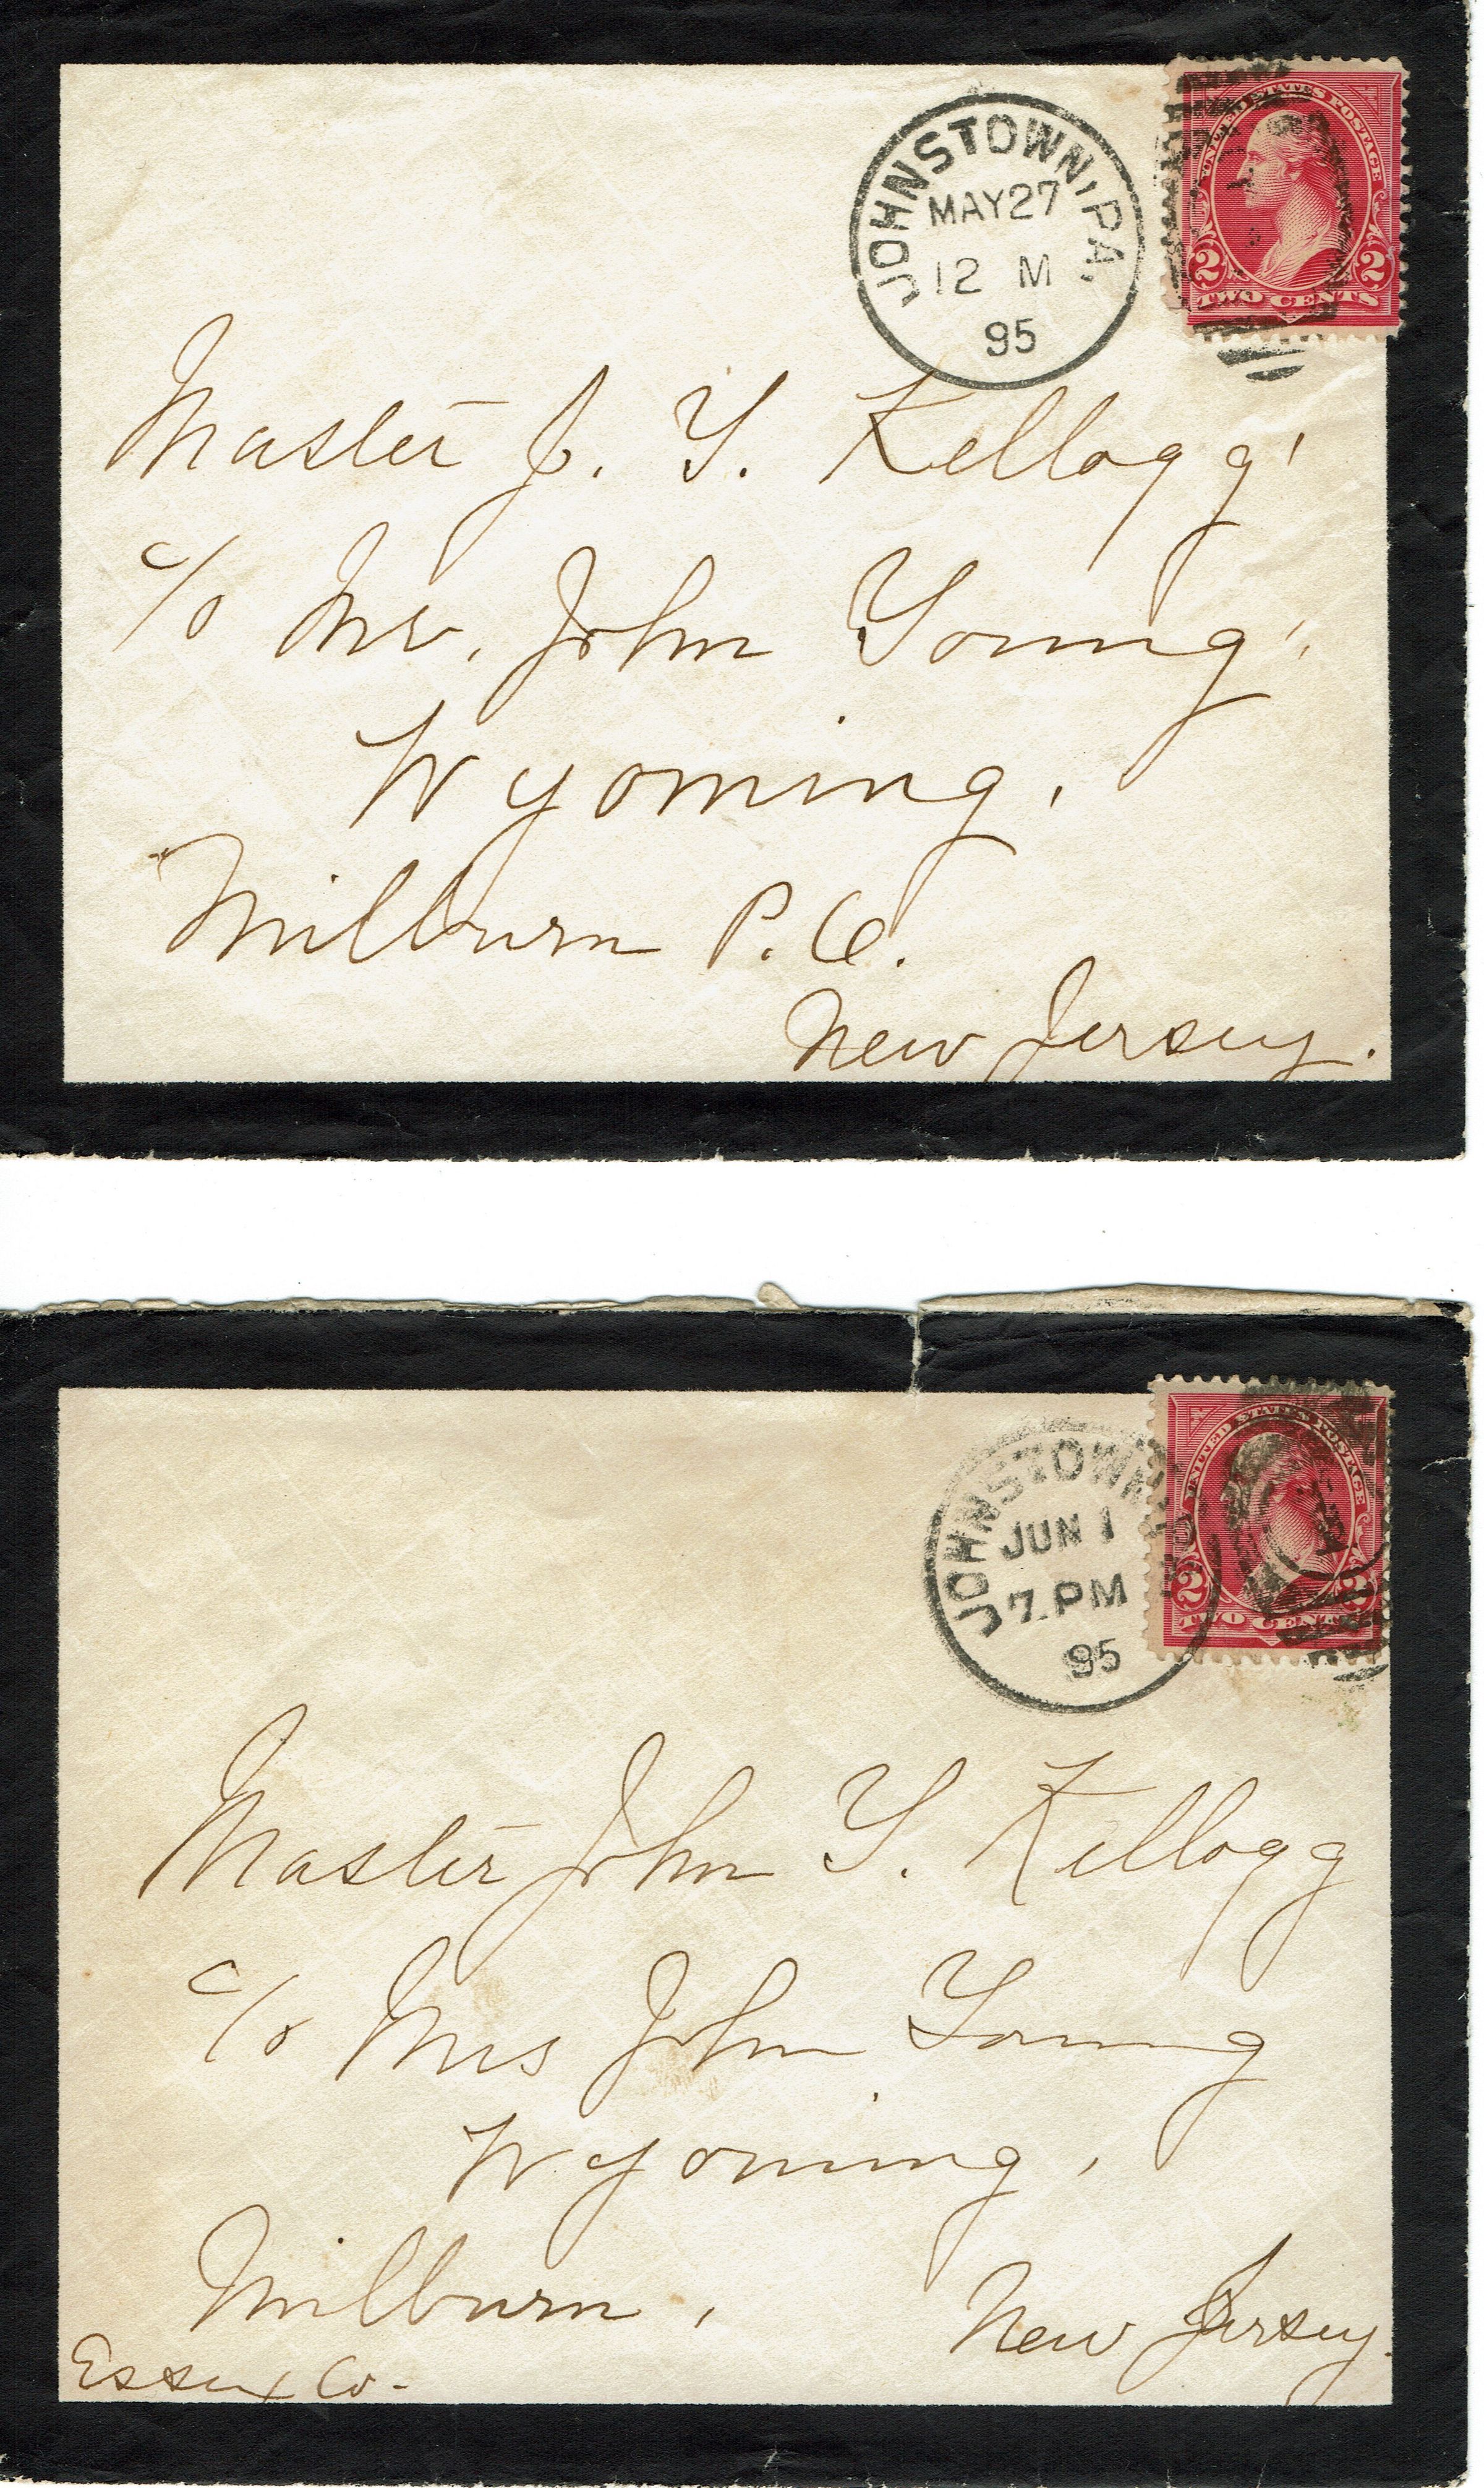 JOHNSTOWN, PA.
MAY 27
12 M
95
UNITED STATES POSTAGE
2 2
TWO CENTS
Master J. Y. Kellogg,
c/o Mr. John Young,
Wyoming,
Milburn P.O.
New Jersey.
JOHNSTOWN
JUN 1
7 PM
95
UNITED STATES POSTAGE
2 2
TWO CENTS
1
Master John Y. Kellogg
c/o Mrs John Young
Wyoming,
Milburn,
New Jersey.
Essex Co.